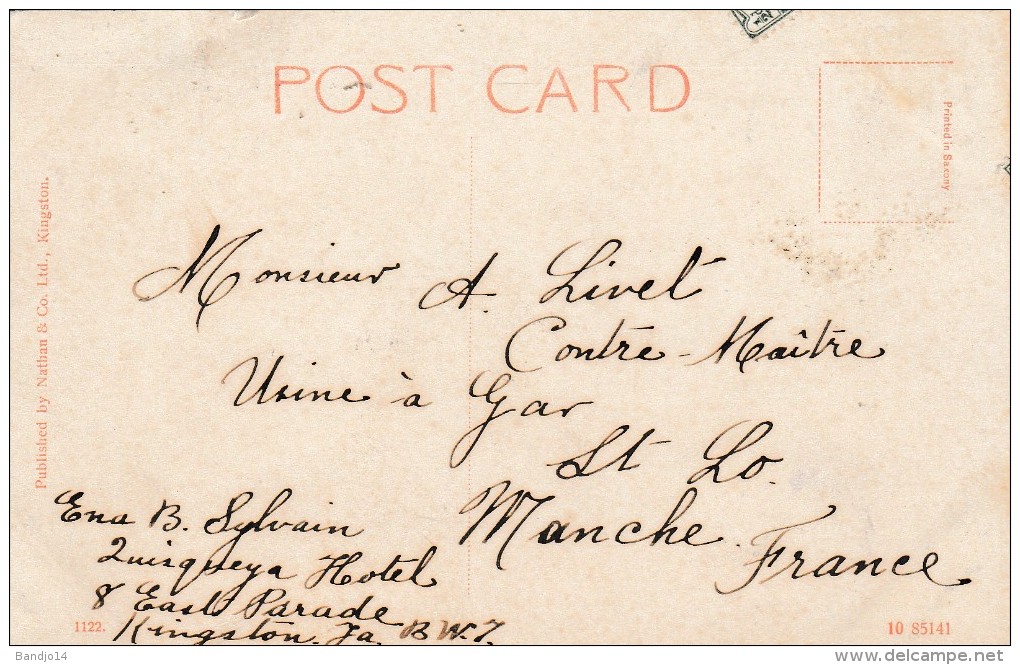 POST CARD
Printed in Saxony
Published by Nathan & Co. Ltd., Kingston.
Monsieur A. Livet
Contre-Maître
Usine à Gar
St Lo.
Manche.
France
Ena B. Sylvain
Quisqueya Hotel
8 East Parade
Kingston. Ja. B.W.I.
1122.
10 85141
Bandjo14
www.delcampe.net